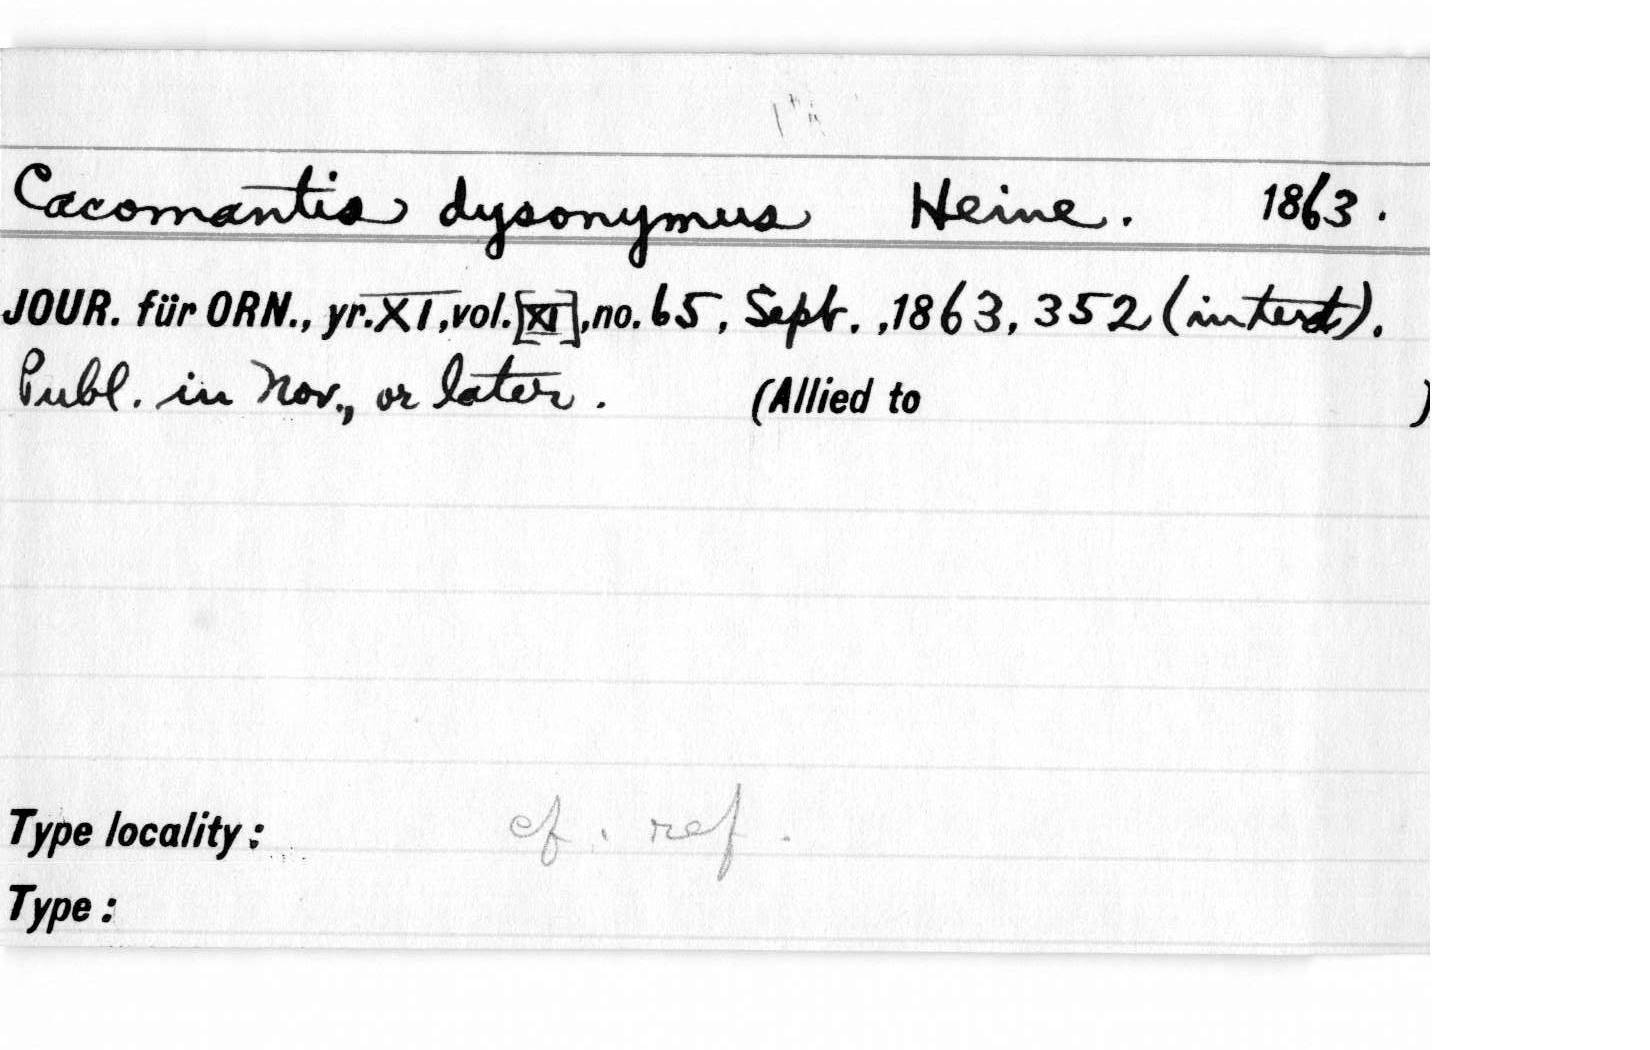 Cacomantis dysonymus Heine. 1863.
JOUR. für ORN., yr. XI, vol. [XI], no. 65, Sept., 1863, 352 (in text).
Publ. in Nov., or later. (Allied to )
Type locality: cf. ref.
Type: